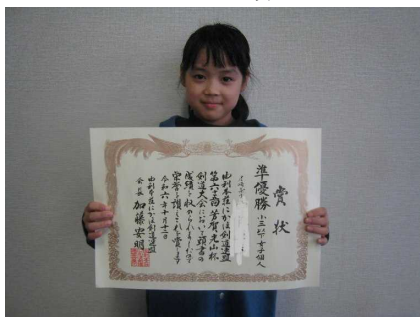 賞状
準優勝 小三以下女子個人
由利本荘にかほ剣道連盟
第六三回芳賀光山杯
剣道大会において頭書の
成績を収められましたので
栄誉を讃えこれを賞します
令和六年十月十二日
由利本荘にかほ剣道連盟
会長 加藤安明